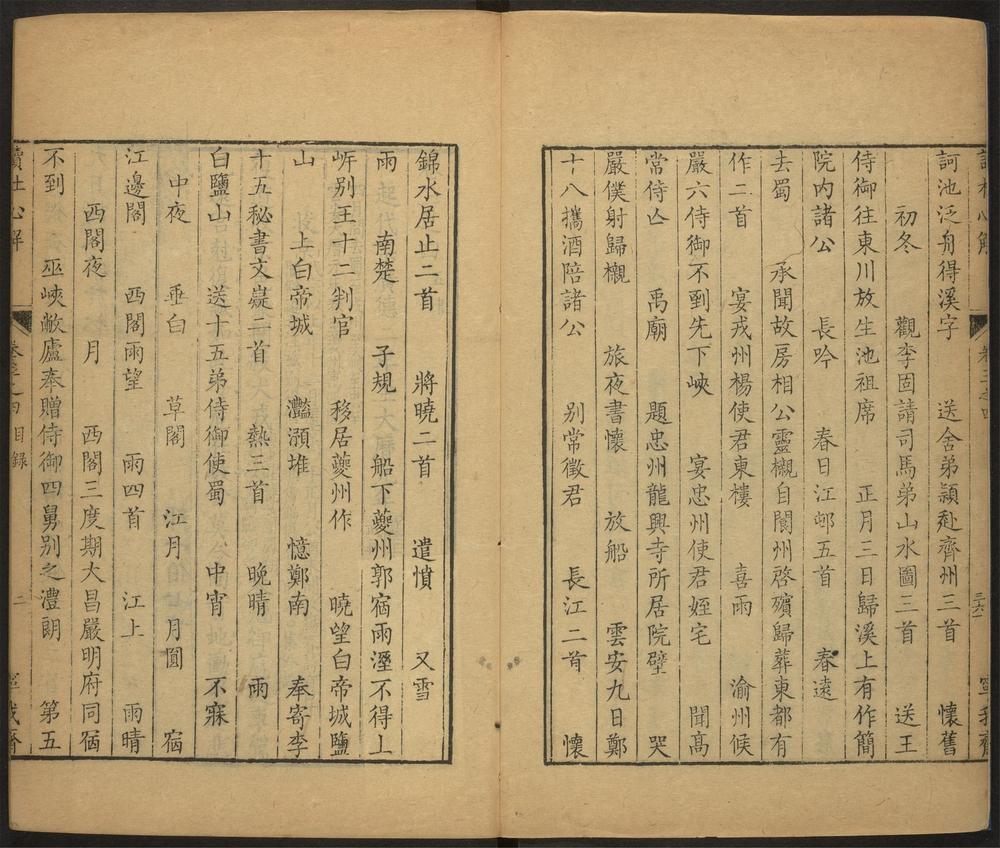 讀杜心解 卷三之四 三六一 寧我齋
訶池泛舟得溪字 送舍弟穎赴齊州三首 懷舊
初冬 觀李固請司馬弟山水圖三首 送王
侍御往東川放生池祖席 正月三日歸溪上有作簡
院內諸公 長吟 春日江邨五首 春遠
去蜀 承聞故房相公靈櫬自閬州啓殯歸葬東都有
作二首 宴戎州楊使君東樓 喜雨 渝州候
嚴六侍御不到先下峽 宴忠州使君姪宅 聞高
常侍亾 禹廟 題忠州龍興寺所居院壁 哭
嚴僕射歸櫬 旅夜書懷 放船 雲安九日鄭
十八攜酒陪諸公 別常徵君 長江二首 懷
錦水居止二首 將曉二首 遣憤 又雪
雨 南楚 子規 船下夔州郭宿雨溼不得上
岍別王十二判官 移居夔州作 曉望白帝城鹽
山 上白帝城 灩澦堆 憶鄭南 奉寄李
十五秘書文嶷二首 熱三首 晚晴 雨
白鹽山 送十五弟侍御使蜀 中宵 不寐
中夜 垂白 草閣 江月 月圓 宿
江邊閣 西閣雨望 雨四首 江上 雨晴
西閣夜 月 西閣三度期大昌嚴明府同宿
不到 巫峽敝廬奉贈侍御四舅別之澧朗 第五
讀杜心解 卷三之四目錄 二 寧我齋